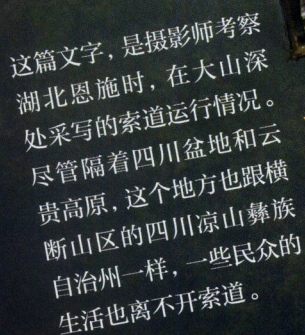 这篇文字，是摄影师考察
湖北恩施时，在大山深
处采写的索道运行情况。
尽管隔着四川盆地和云
贵高原，这个地方也跟横
断山区的四川凉山彝族
自治州一样，一些民众的
生活也离不开索道。